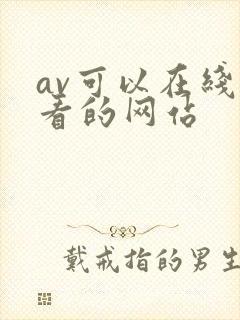 av可以在綫
看的网站
戴戒指的男生